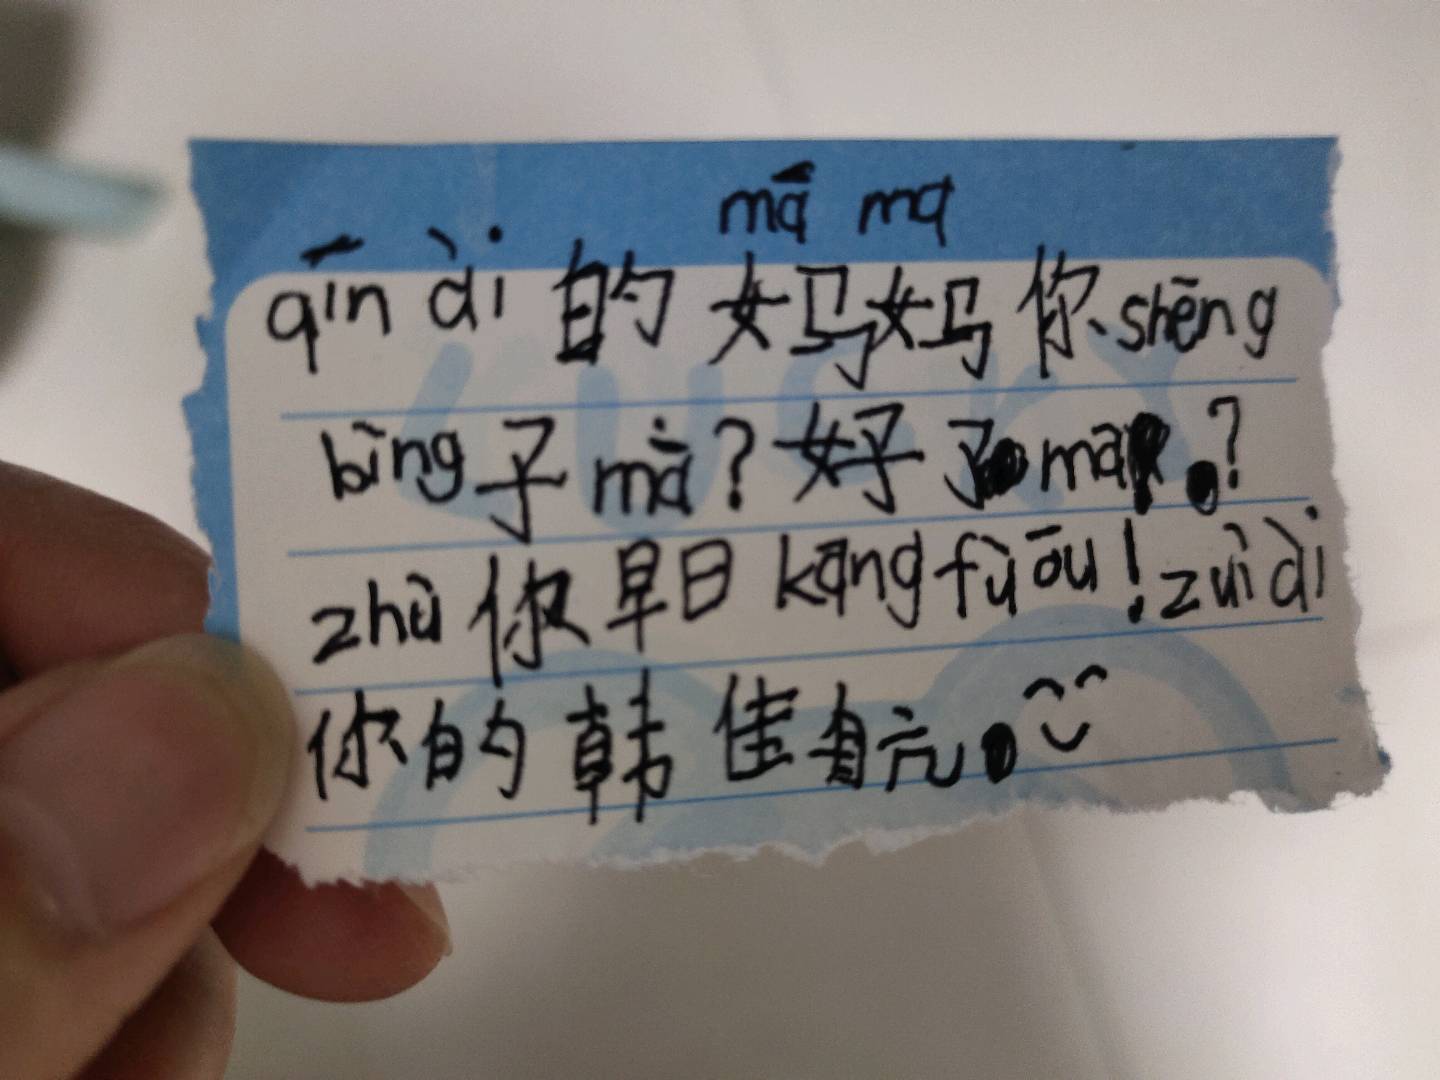 mā ma
qīn ài 的 妈妈 你 shēng
bìng 子 mà? 好了 ma?
zhù 你 早日 kāng fù ōu! zuì ài
你的 韩佳自亢。